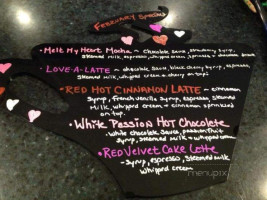 February Specials
• Melt My Heart Mocha ~ Chocolate Sauce, Strawberry Syrup,
Steamed Milk, espresso, whipped cream, sprinkles + chocolate drizzle
• LOVE-A-LATTE ~ chocolate sauce, black cherry syrup, espresso,
Steamed Milk, whipped cream + cherry on top!
• RED HOT CINNAMON LATTE ~ cinnamon
Syrup, french vanilla syrup, espresso, steamed
Milk, whipped cream + cinnamon sprinkled
on top.
• White Passion Hot Chocolate
~ White chocolate sauce, passionfruit
Syrup, steamed milk + whipped cream
• Red Velvet Cake Latte
~ Syrup, espresso, steamed milk
whipped cream
menupix